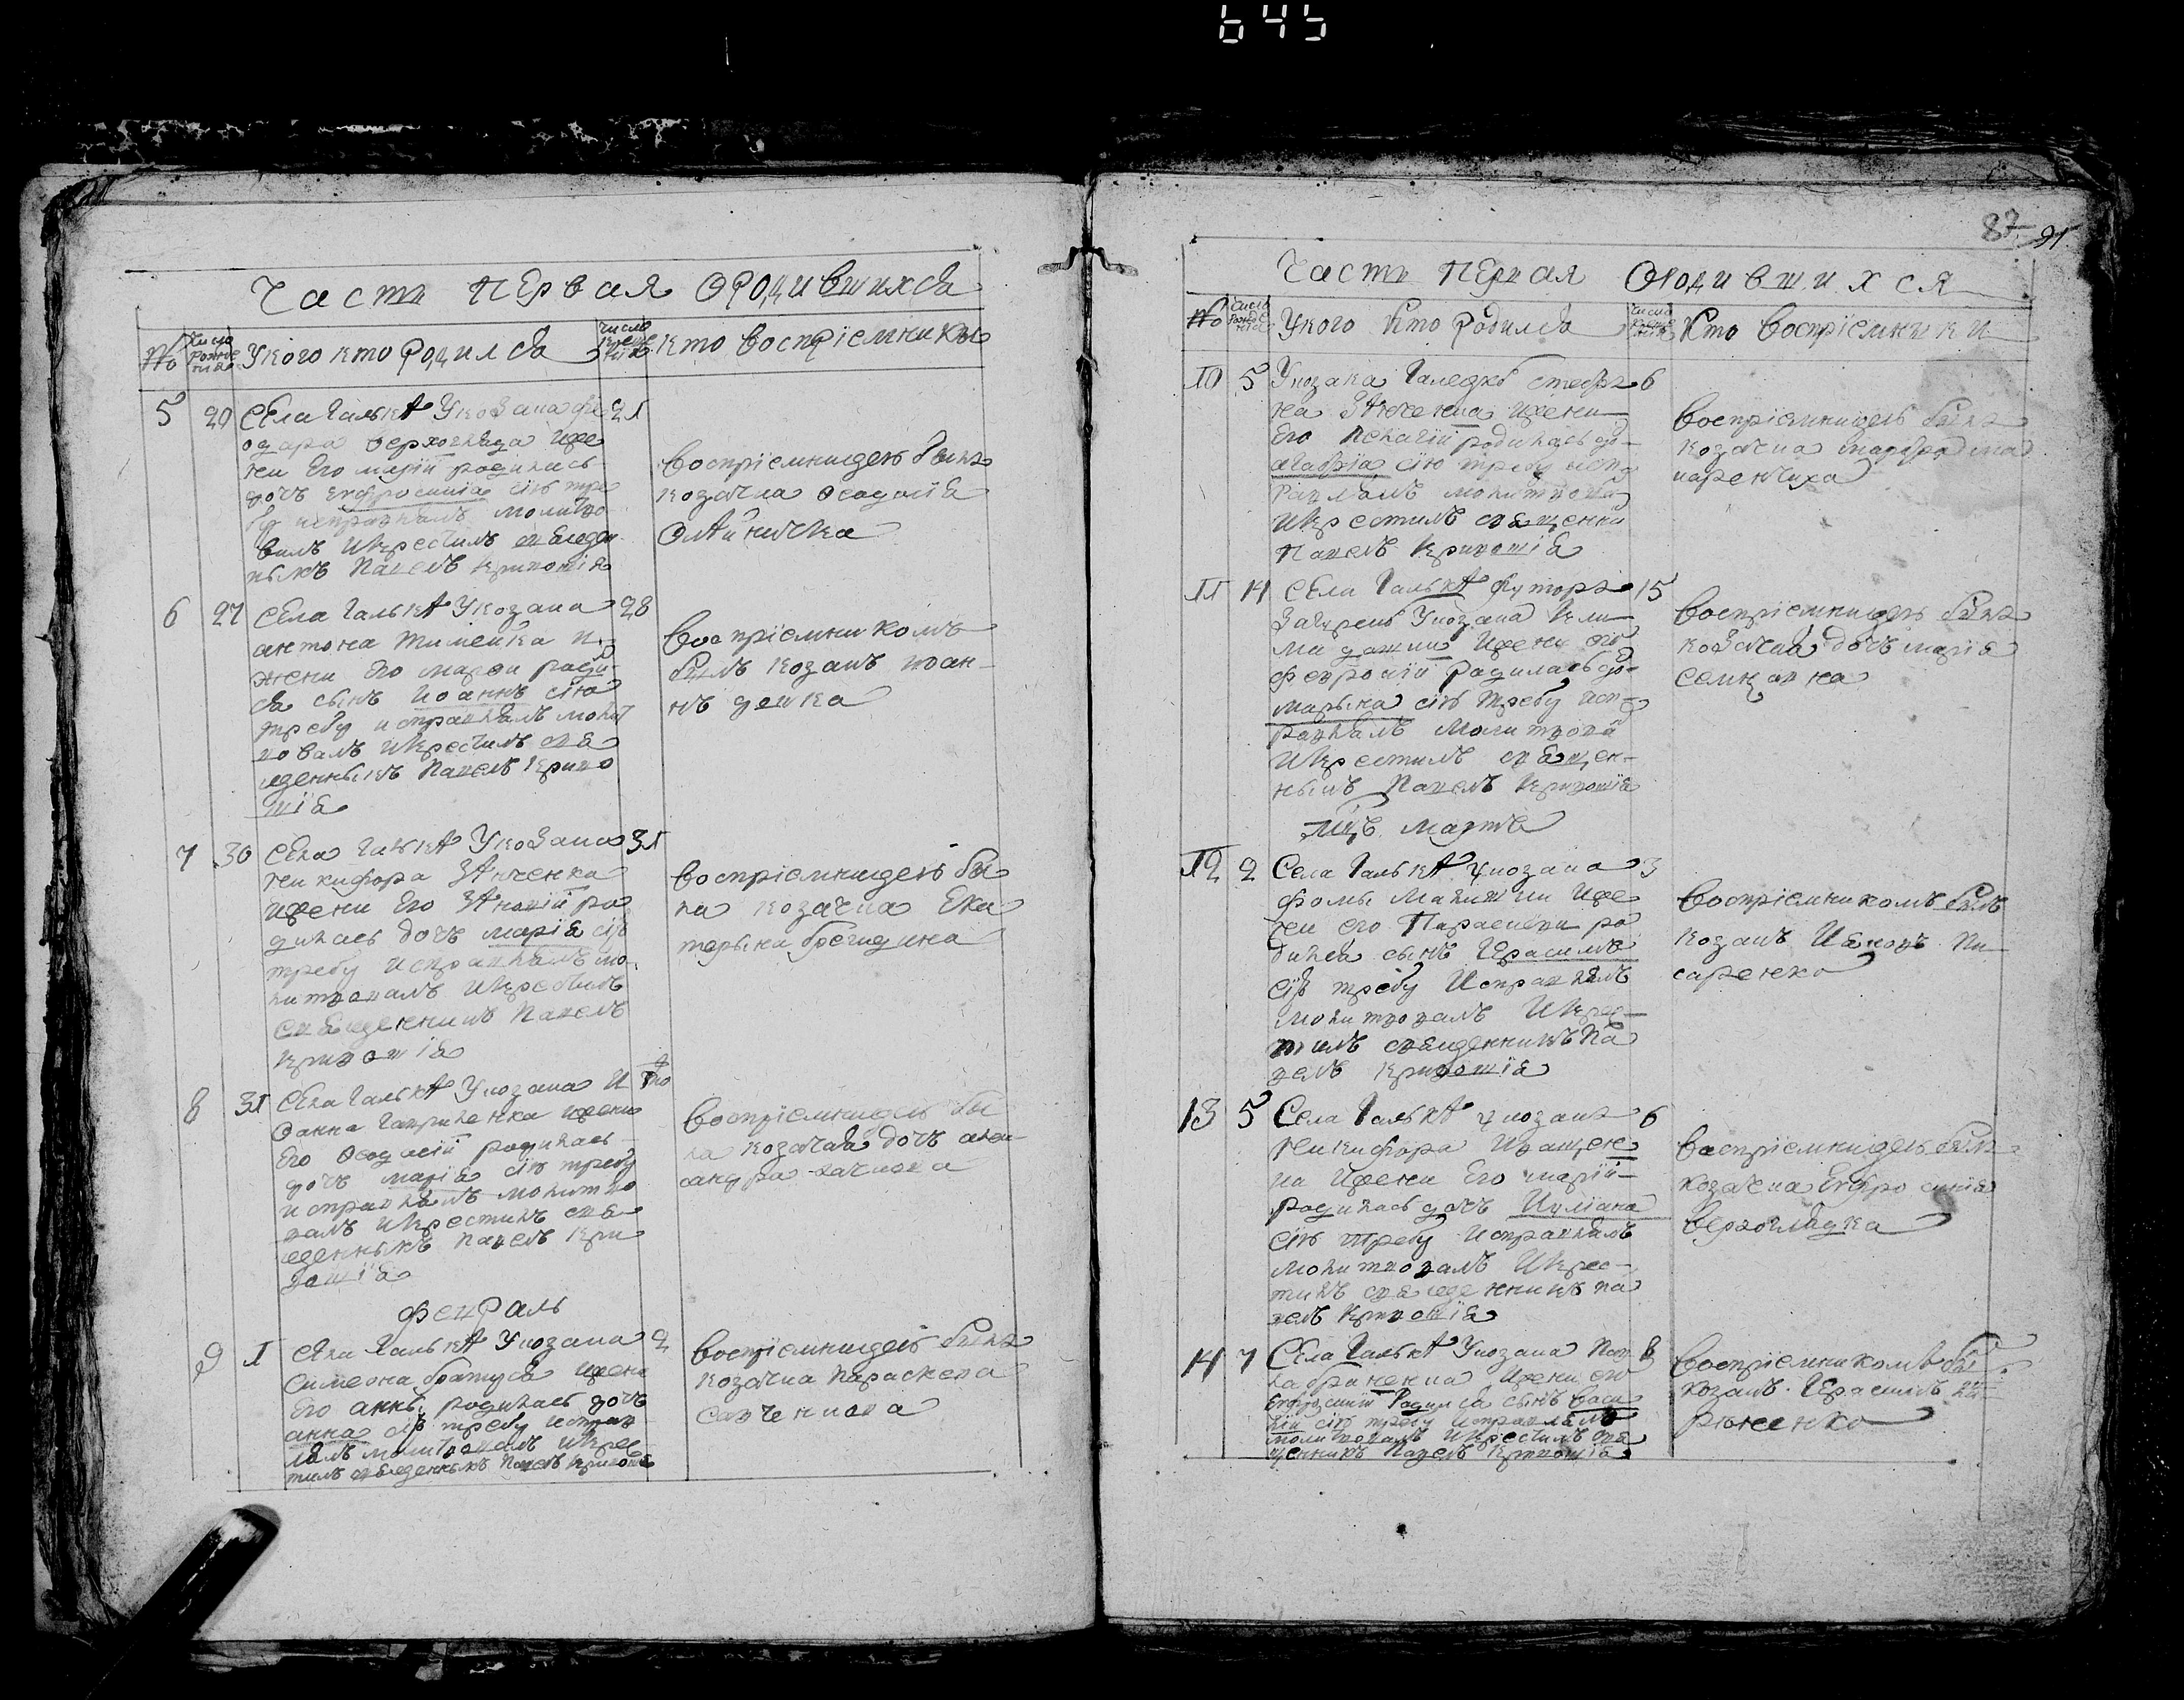 645
Часть первая о родившихся
№ число рожденія У кого кто родился число крещенія кто воспріемники
5 20 села Галькѣ У козака фе 21
одора верхогляда и же
ни его маріи родилась
дочь евфросинія сію тре
бу исправлялъ молитво
валъ и крестилъ священ
никъ Павелъ Кривошія
воспріемницею была
козачка Феодосія
Олѣйничка
6 27 села Галькѣ У козака 28
антона Тимейка и
жени его марфи роди
ся сынъ иоаннъ сію
требу исправлялъ молит
вовалъ и крестилъ свя
щенникъ Павелъ Криво
шія
воспріемникомъ
былъ козакъ иоан
нъ дейка
7 30 села Галькѣ У козака 31
никифора
и жени его
дилась дочъ марія сію
требу исправлялъ мо
литвовалъ и крестилъ
священникъ Павелъ
Кривошія
воспріемницею бы
ла козачка Ека
терына
8 31 села Галькѣ У козака И
оанна Гавриленка жени
его Феодосіи родилась
дочь марія сію требу
исправлялъ молитво
валъ и крестилъ свя
щенникъ Павелъ Кри
вошія
воспріемницею бы
ла козачая дочъ алек
сандра
февраль
9 1 села Галькѣ У козака 2
симеона братуся и жени
его анны родилась дочь
анна сію требу исправ
лялъ молитвовалъ и крес
тилъ священникъ Павелъ Кривошія
воспріемницею была
козачка Параскева
Савченкова
87 91
Часть первая о родившихся
№ число рожденія У кого кто родился число крещенія кто воспріемники
10 5 У козака Галецкѣ стефа 6
на и жени
его Пелагіи родилась до
агафія сію требу испо
равлялъ молитвовалъ
и крестилъ священни
Павелъ Кривошія
воспріемницею была
козачка марфа ма
каренчиха
11 14 села Галькѣ футора 15
У козака Кли
ма и жени его
февроніи родилась до
марына сію требу исп
равлялъ молитвовал
и крестилъ священ
ныкъ Павелъ Кривошія
воспріемницею была
козачая дочъ марія
семцовна
мцъ мартъ
12 2 Села Галькѣ у козака 3
фомы и же
ни его Параскеви ро
дился сынъ Герасимъ
сію требу исправлялъ
молитвовалъ и крес
тилъ священникъ Па
велъ Кривошія
воспріемникомъ былъ
козакъ Иаковъ Пи
саренко
13 5 Села Галькѣ у козака 6
никифора Иващен
ка и жени его маріи
родилась дочь Иуліана
сію требу исправлялъ
молитвовалъ и крес
тилъ священникъ па
велъ Кривошія
воспріемницею была
козачка Евфросинія
Верхогляdка
14 7 Села Галькѣ У козака Пав 8
ла и жени его
Евфросиніи родился сынъ васи
лій сію требу исправлялъ
молитвовалъ и крестилъ свя
щенникъ Павелъ Кривошія
воспріемникомъ бы
козакъ Герасимъ